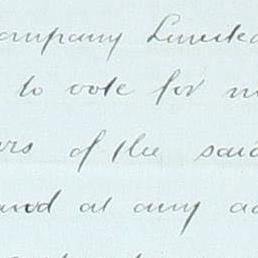 ompany Limited
to vote for m
ers of the said
and at any ad